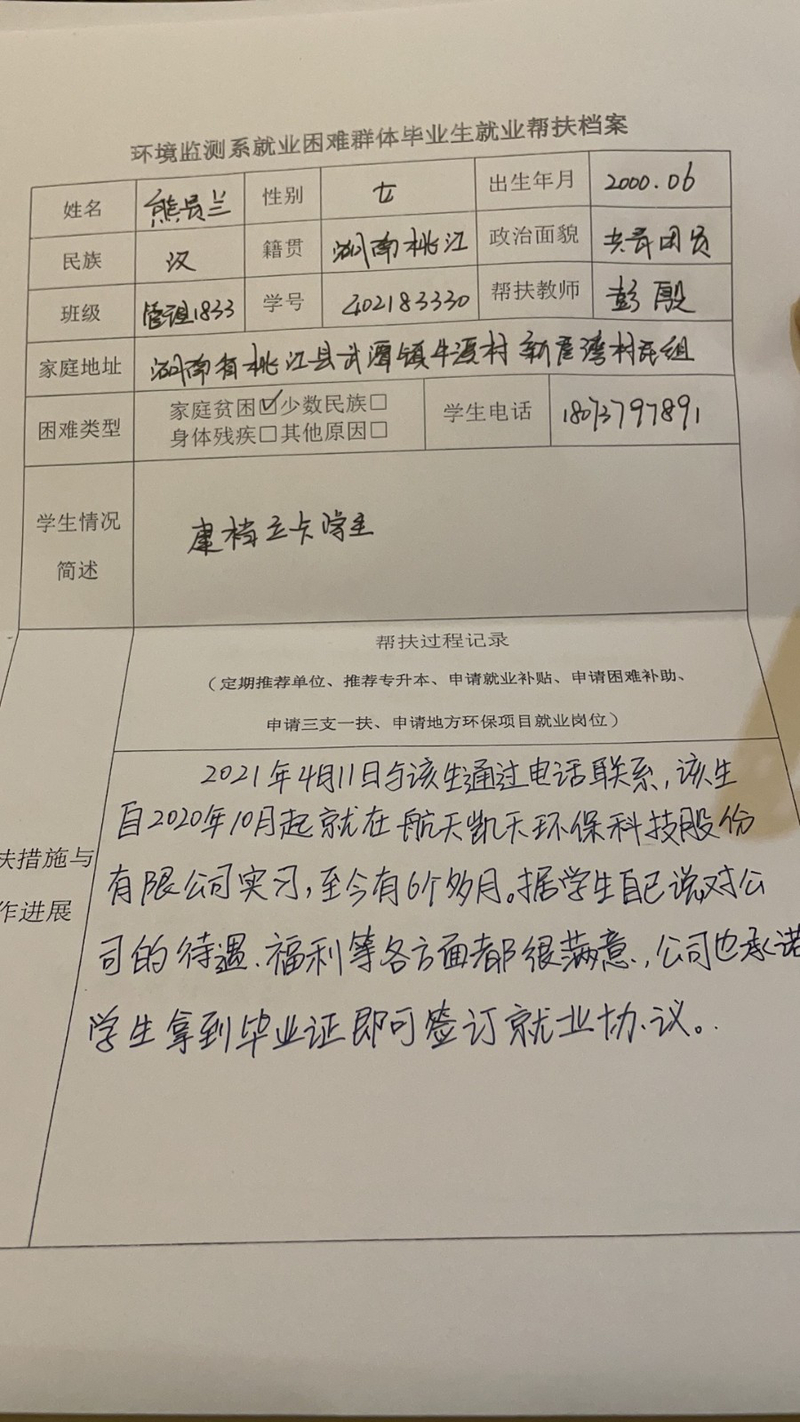 环境监测系就业困难群体毕业生就业帮扶档案
姓名 熊员兰 性别 女 出生年月 2000.06
民族 汉 籍贯 湖南桃江 政治面貌 共青团员
班级 管理1833 学号 402183330 帮扶教师 彭殷
家庭地址 湖南省桃江县武潭镇牛溪村新屋湾村民组
困难类型 家庭贫困☑少数民族□ 学生电话
身体残疾□其他原因□
学生情况 建档立卡学生
简述
帮扶过程记录
（定期推荐单位、推荐专升本、申请就业补贴、申请困难补助、
申请三支一扶、申请地方环保项目就业岗位）
2021年4月11日与该生通过电话联系，该生
自2020年10月起就在航天凯天环保科技股份
扶措施与
有限公司实习，至今有6个多月。据学生自己说，对公
作进展
司的待遇、福利等各方面都很满意，公司也承诺
学生拿到毕业证即可签订就业协议。